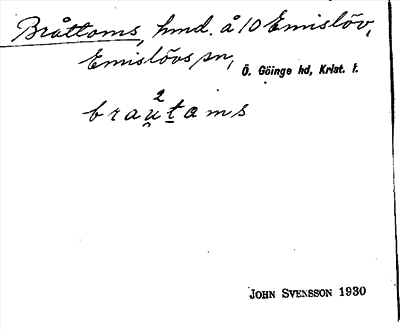 Bråttoms, hmd. å 10 Emislöv,
Emislövs sn, Ö. Göinge hd, Krist. l.
2
brau̯tams
JOHN SVENSSON 1930